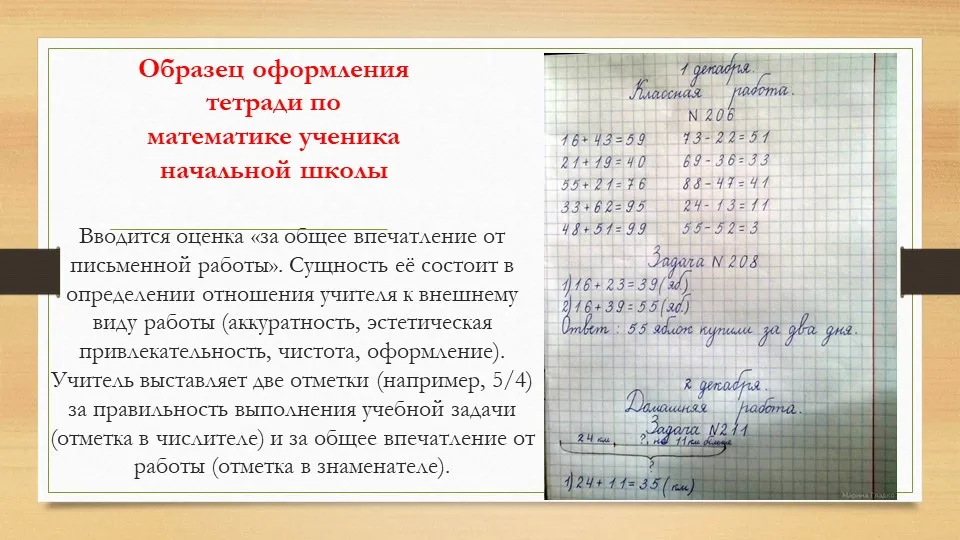 Образец оформления
тетради по
математике ученика
начальной школы
Вводится оценка «за общее впечатление от
письменной работы». Сущность её состоит в
определении отношения учителя к внешнему
виду работы (аккуратность, эстетическая
привлекательность, чистота, оформление).
Учитель выставляет две отметки (например, 5/4)
за правильность выполнения учебной задачи
(отметка в числителе) и за общее впечатление от
работы (отметка в знаменателе).
1 декабря.
Классная работа.
N 206
16+43=59 73-22=51
21+19=40 69-36=33
55+21=76 88-47=41
33+62=95 24-13=11
48+51=99 55-52=3
Задача N 208
1) 16+23=39 (яб.)
2) 16+39=55 (яб.)
Ответ : 55 яблок купили за два дня.
2 декабря.
Домашняя работа.
Задача N 211
24 км ?, на 11 км больше
?
1) 24+11=35 (км)
Марина Гладко